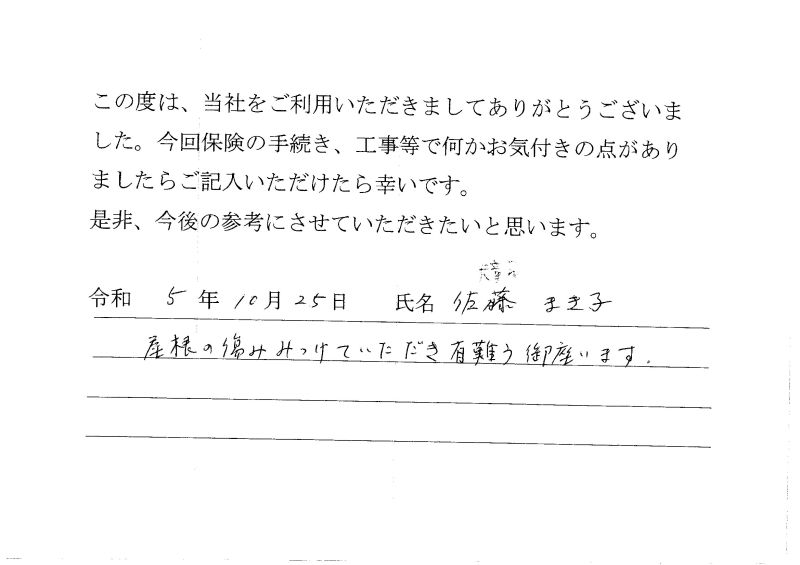 この度は、当社をご利用いただきましてありがとうございま
した。今回保険の手続き、工事等で何かお気付きの点があり
ましたらご記入いただけたら幸いです。
是非、今後の参考にさせていただきたいと思います。
令和 5 年 10 月 25 日 氏名 佐藤 まき子
屋根の傷みみつけていただき有難う御座います.